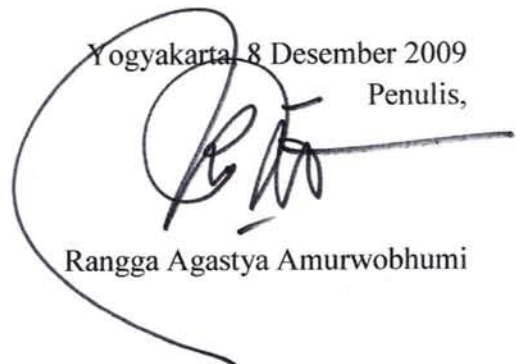 Yogyakarta, 8 Desember 2009
Penulis,
Rangga Agastya Amurwobhumi